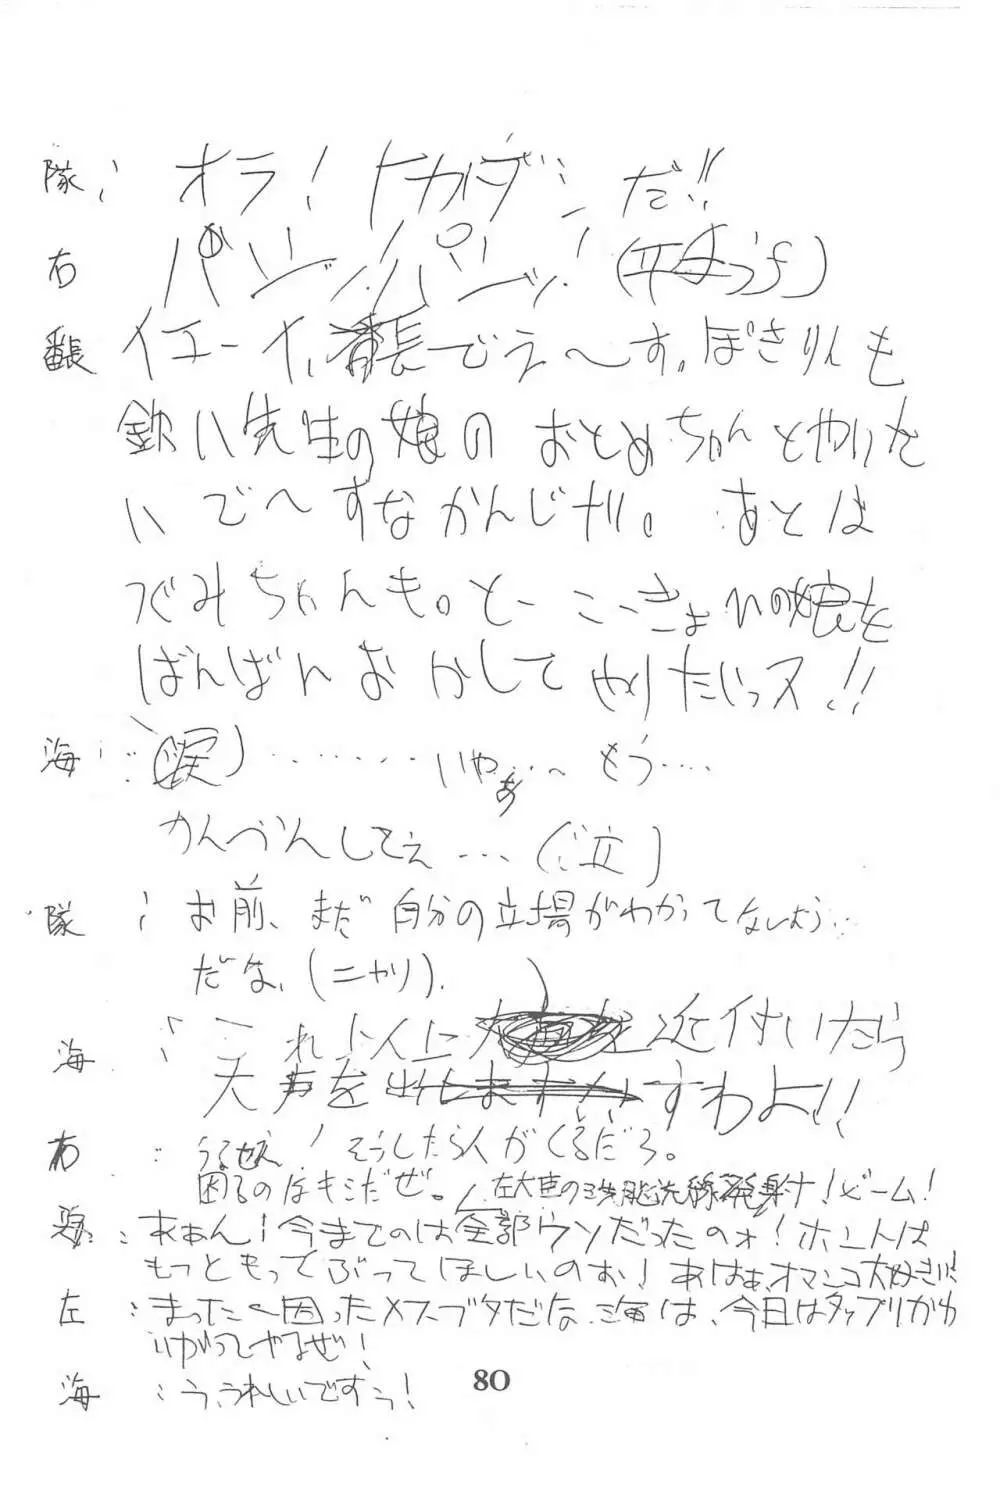 隊： オラ！ トカゲダンだ!!
右 パンッ！パンッ！（平手うち）
番長 イエーイ、番長でえ〜す。ぼきりんも
欽八先生の娘のおとめちゃんとやりた
いで〜すなかんじダ。 あとは
つぐみちゃんも。と の娘を
ばんばんおかしてやりたいっス!!
海：（涙）………いやぁ…〜もう….
かんべんしてえ…（泣）
隊： お前、まだ自分の立場がわかってないよう…
だな、（ニヤリ）.
海： これ以上に 近付いたら
大声を出しますわよ!!
右： うるせえ！そうしたら人がくるだろ。
困るのはキミだぜ。左大臣の洗脳光線発射ナ！ビーム！
海： あぁん！今までのは全部ウソだったのォ！ホントは
もっともってぶってほしいのお！あはぁ、オマンコ大好き!!
左： まった〜困ったメスブタだな、海は、今日はタップリかわ
いがってやるぜ！
海： う、うれしいですぅ！
80